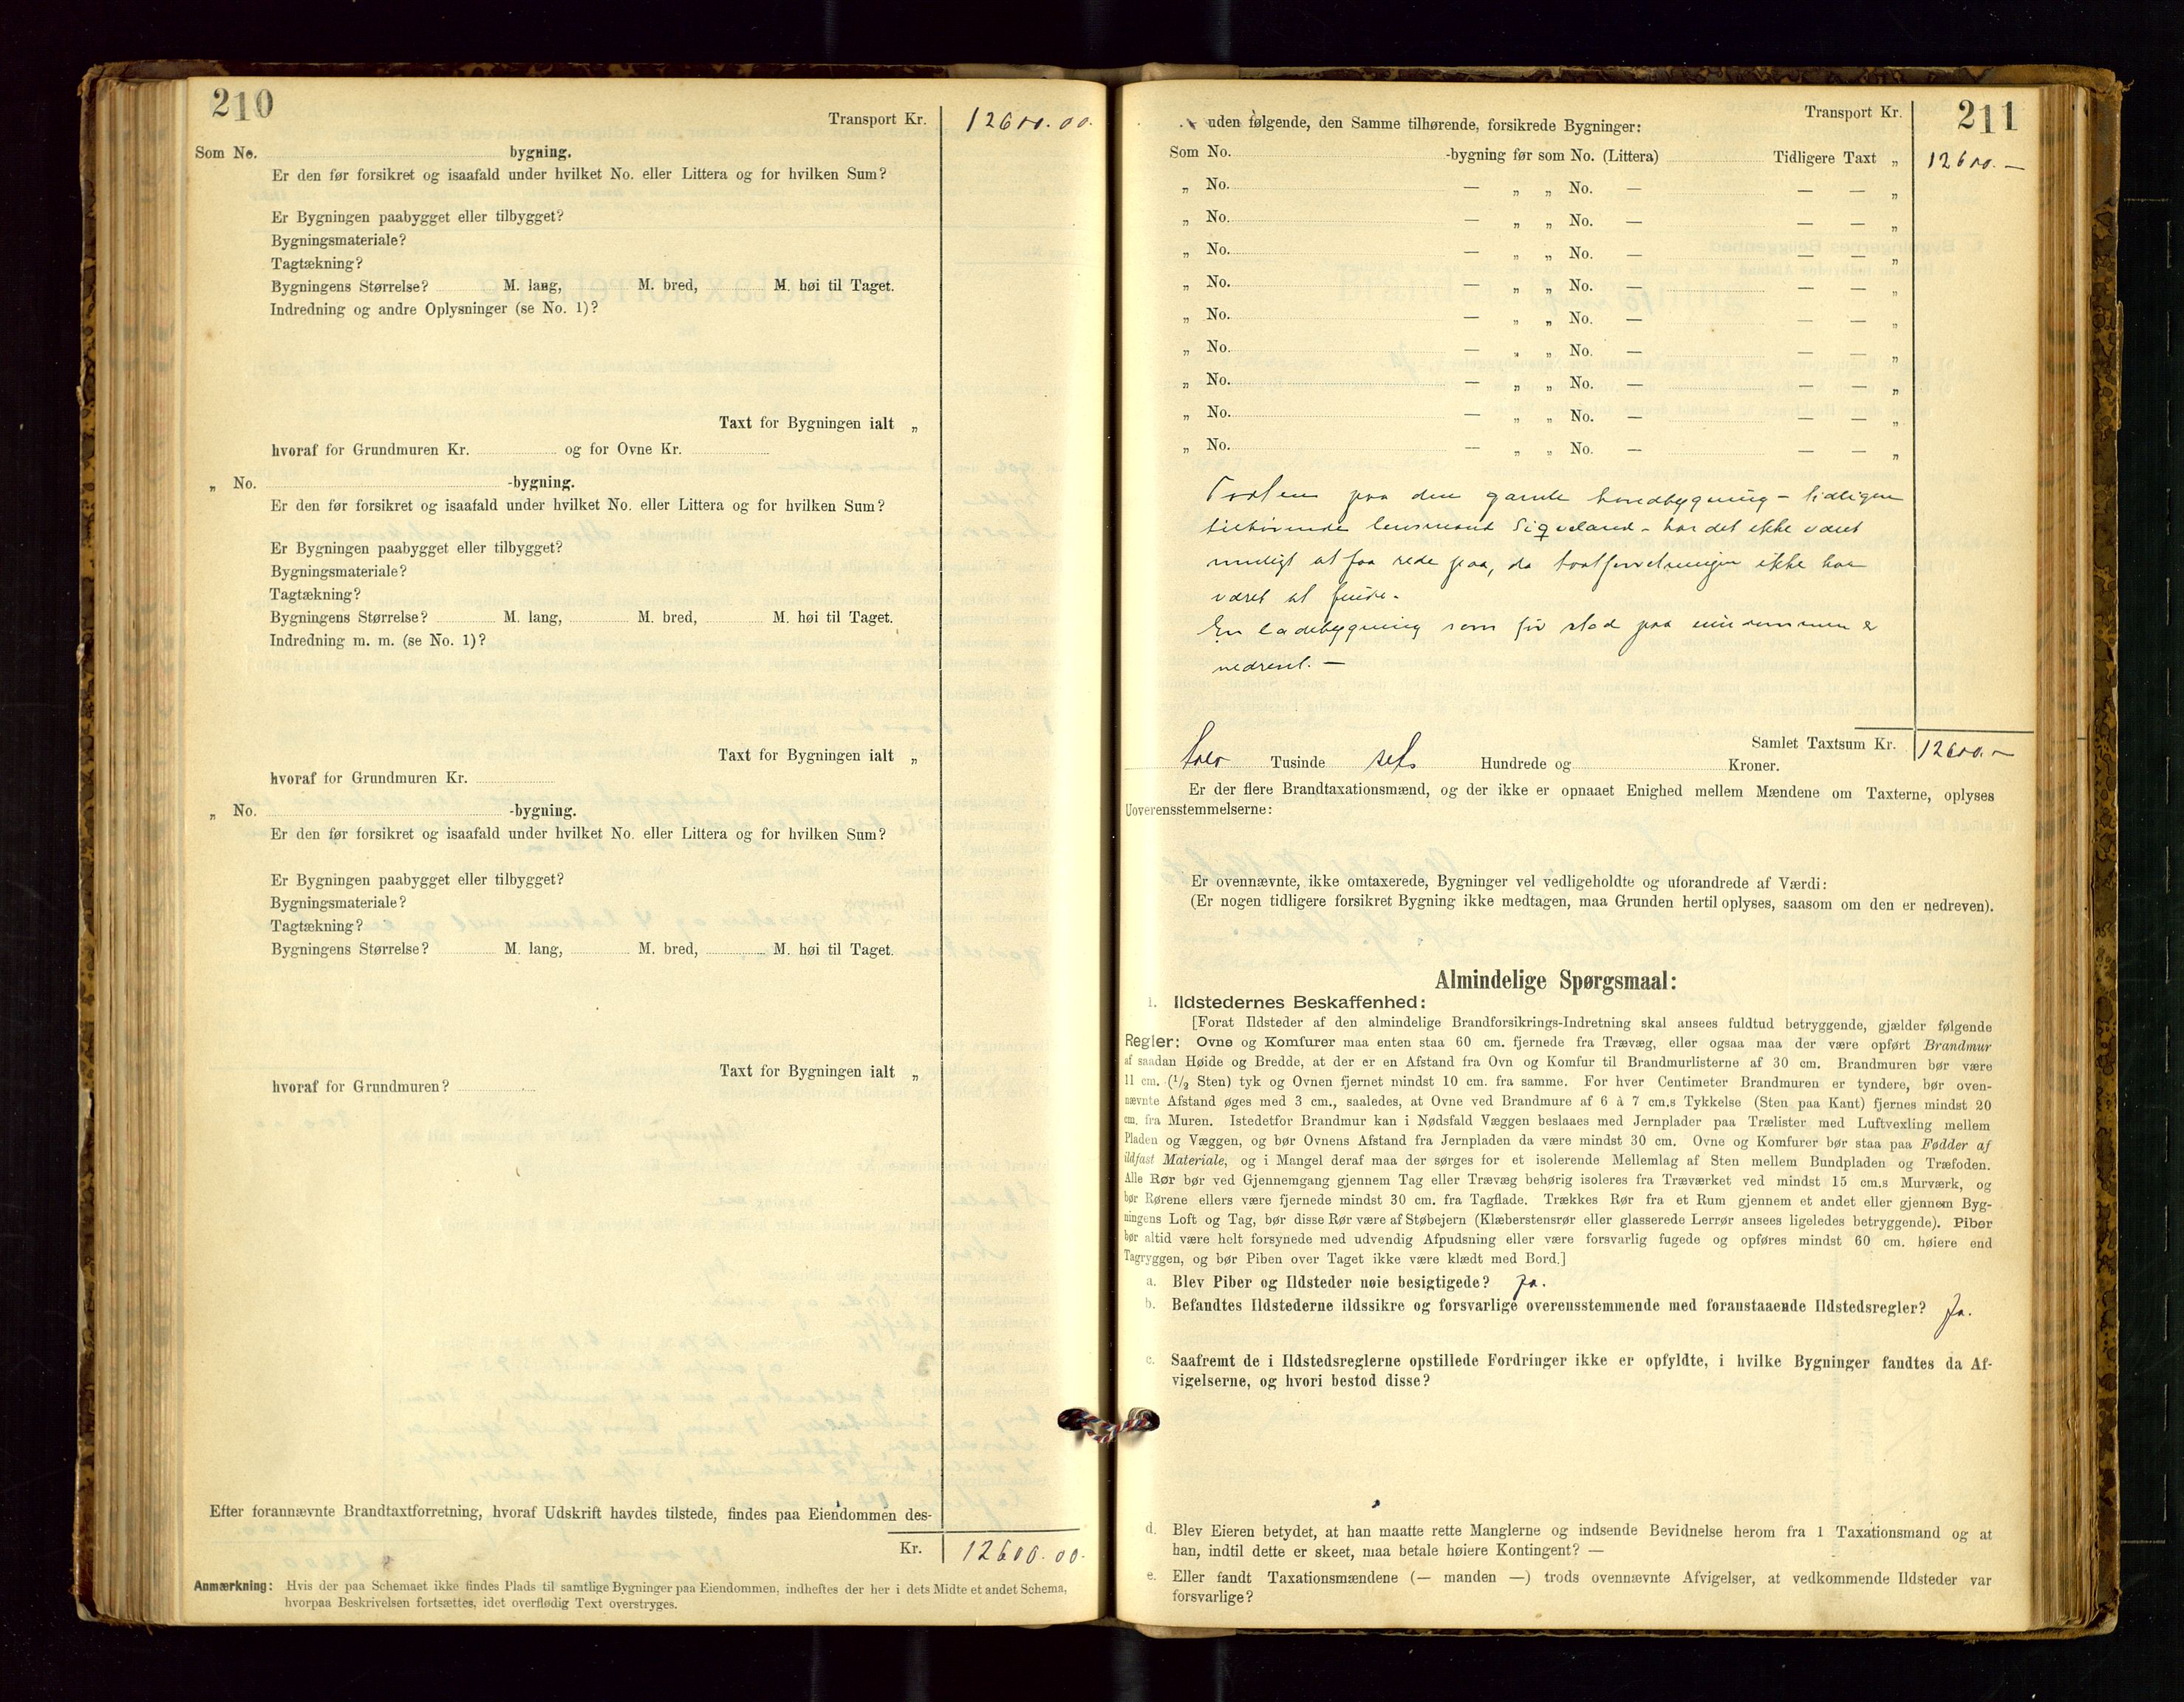 210
Transport Kr. 12600.00.
Som No. bygning.
Er den før forsikret og isaafald under hvilket No. eller Littera og for hvilken Sum?
Er Bygningen paabygget eller tilbygget?
Bygningsmateriale?
Tagtækning?
Bygningens Størrelse? M. lang, M. bred, M. høi til Taget.
Indredning og andre Oplysninger (se No. 1)?
Taxt for Bygningen ialt „
hvoraf for Grundmuren Kr. og for Ovne Kr.
„ No. -bygning.
Er den før forsikret og isaafald under hvilket No. eller Littera og for hvilken Sum?
Er Bygningen paabygget eller tilbygget?
Bygningsmateriale?
Tagtækning?
Bygningens Størrelse? M. lang, M. bred, M. høi til Taget.
Indredning m. m. (se No. 1)?
Taxt for Bygningen ialt „
hvoraf for Grundmuren Kr.
„ No. -bygning.
Er den før forsikret og isaafald under hvilket No. eller Littera og for hvilken Sum?
Er Bygningen paabygget eller tilbygget?
Bygningsmateriale?
Tagtækning?
Bygningens Størrelse? M. lang, M. bred, M. høi til Taget.
Taxt for Bygningen ialt „
hvoraf for Grundmuren?
Efter forannævnte Brandtaxtforretning, hvoraf Udskrift havdes tilstede, findes paa Eiendommen des-
Kr. 12600.00.
Anmærkning: Hvis der paa Schemaet ikke findes Plads til samtlige Bygninger paa Eiendommen, indheftes der her i dets Midte et andet Schema,
hvorpaa Beskrivelsen fortsættes, idet overflødig Text overstryges.
211
Transport Kr.
uden følgende, den Samme tilhørende, forsikrede Bygninger:
Som No. -bygning før som No. (Littera) Tidligere Taxt „ 12600.—
„ No. — „ „ No. — — — „
„ No. — „ „ No. — — — „
„ No. — „ „ No. — — — „
„ No. — „ „ No. — — — „
„ No. — „ „ No. — — — „
„ No. — „ „ No. — — — „
„ No. — „ „ No. — — — „
„ No. — „ „ No. — — — „
„ No. — „ „ No. — — — „
Taxten paa den gamle hovedbygning – tidligere
tilhørende lensmand Siqveland – har det ikke været
muligt at faa rede paa, da taxtforretningen ikke har
været at finde.
En ladebygning som før stod paa eiendommen er
nedrevet. —
Samlet Taxtsum Kr. 12600.—
tolv Tusinde seks Hundrede og Kroner.
Er der flere Brandtaxationsmænd, og der ikke er opnaaet Enighed mellem Mændene om Taxterne, oplyses
Uoverensstemmelserne:
Er ovennævnte, ikke omtaxerede, Bygninger vel vedligeholdte og uforandrede af Værdi:
(Er nogen tidligere forsikret Bygning ikke medtagen, maa Grunden hertil oplyses, saasom om den er nedreven).
Almindelige Spørgsmaal:
1. Ildstedernes Beskaffenhed:
[Forat Ildsteder af den almindelige Brandforsikrings-Indretning skal ansees fuldtud betryggende, gjælder følgende
Regler: Ovne og Komfurer maa enten staa 60 cm. fjernede fra Trævæg, eller ogsaa maa der være opført Brandmur
af saadan Høide og Bredde, at der er en Afstand fra Ovn og Komfur til Brandmurlisterne af 30 cm. Brandmuren bør være
11 cm. (1/2 Sten) tyk og Ovnen fjernet mindst 10 cm. fra samme. For hver Centimeter Brandmuren er tyndere, bør oven-
nævnte Afstand øges med 3 cm., saaledes, at Ovne ved Brandmure af 6 à 7 cm.s Tykkelse (Sten paa Kant) fjernes mindst 20
cm. fra Muren. Istedetfor Brandmur kan i Nødsfald Væggen beslaaes med Jernplader paa Trælister med Luftvexling mellem
Pladen og Væggen, og bør Ovnens Afstand fra Jernpladen da være mindst 30 cm. Ovne og Komfurer bør staa paa Fødder af
ildfast Materiale, og i Mangel deraf maa der sørges for et isolerende Mellemlag af Sten mellem Bundpladen og Træfoden.
Alle Rør bør ved Gjennemgang gjennem Tag eller Trævæg behørig isoleres fra Træværket ved mindst 15 cm.s Murværk, og
bør Rørene ellers være fjernede mindst 30 cm. fra Tagflade. Trækkes Rør fra et Rum gjennem et andet eller gjennem Byg-
ningens Loft og Tag, bør disse Rør være af Støbejern (Klæberstensrør eller glasserede Lerrør ansees ligeledes betryggende). Piber
bør altid være helt forsynede med udvendig Afpudsning eller være forsvarlig fugede og opføres mindst 60 cm. høiere end
Tagryggen, og bør Piben over Taget ikke være klædt med Bord.]
a. Blev Piber og Ildsteder nøie besigtigede? Ja.
b. Befandtes Ildstederne ildssikre og forsvarlige overensstemmende med foranstaaende Ildstedsregler? Ja.
c. Saafremt de i Ildstedsreglerne opstillede Fordringer ikke er opfyldte, i hvilke Bygninger fandtes da Af-
vigelserne, og hvori bestod disse?
d. Blev Eieren betydet, at han maatte rette Manglerne og indsende Bevidnelse herom fra 1 Taxationsmand og at
han, indtil dette er skeet, maa betale høiere Kontingent? —
e. Eller fandt Taxationsmændene (— manden —) trods ovennævnte Afvigelser, at vedkommende Ildsteder var
forsvarlige?